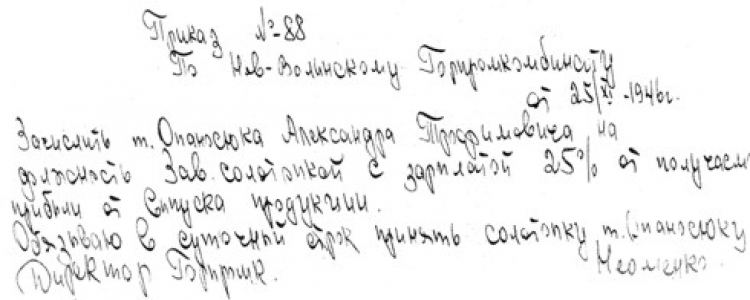 Приказ №-88
По Нов-Волинскому Горпромкомбинату
от 25/XI-1946г.
Зачислить т. Опанасюка Александра Трофимовича на
должность Зав. солотопкой с зарплатой 25% от получаем
прибыли от выпуска продукции.
Обязываю в суточный срок принять солотопку т. Опанасюку
Директор Горпромк.